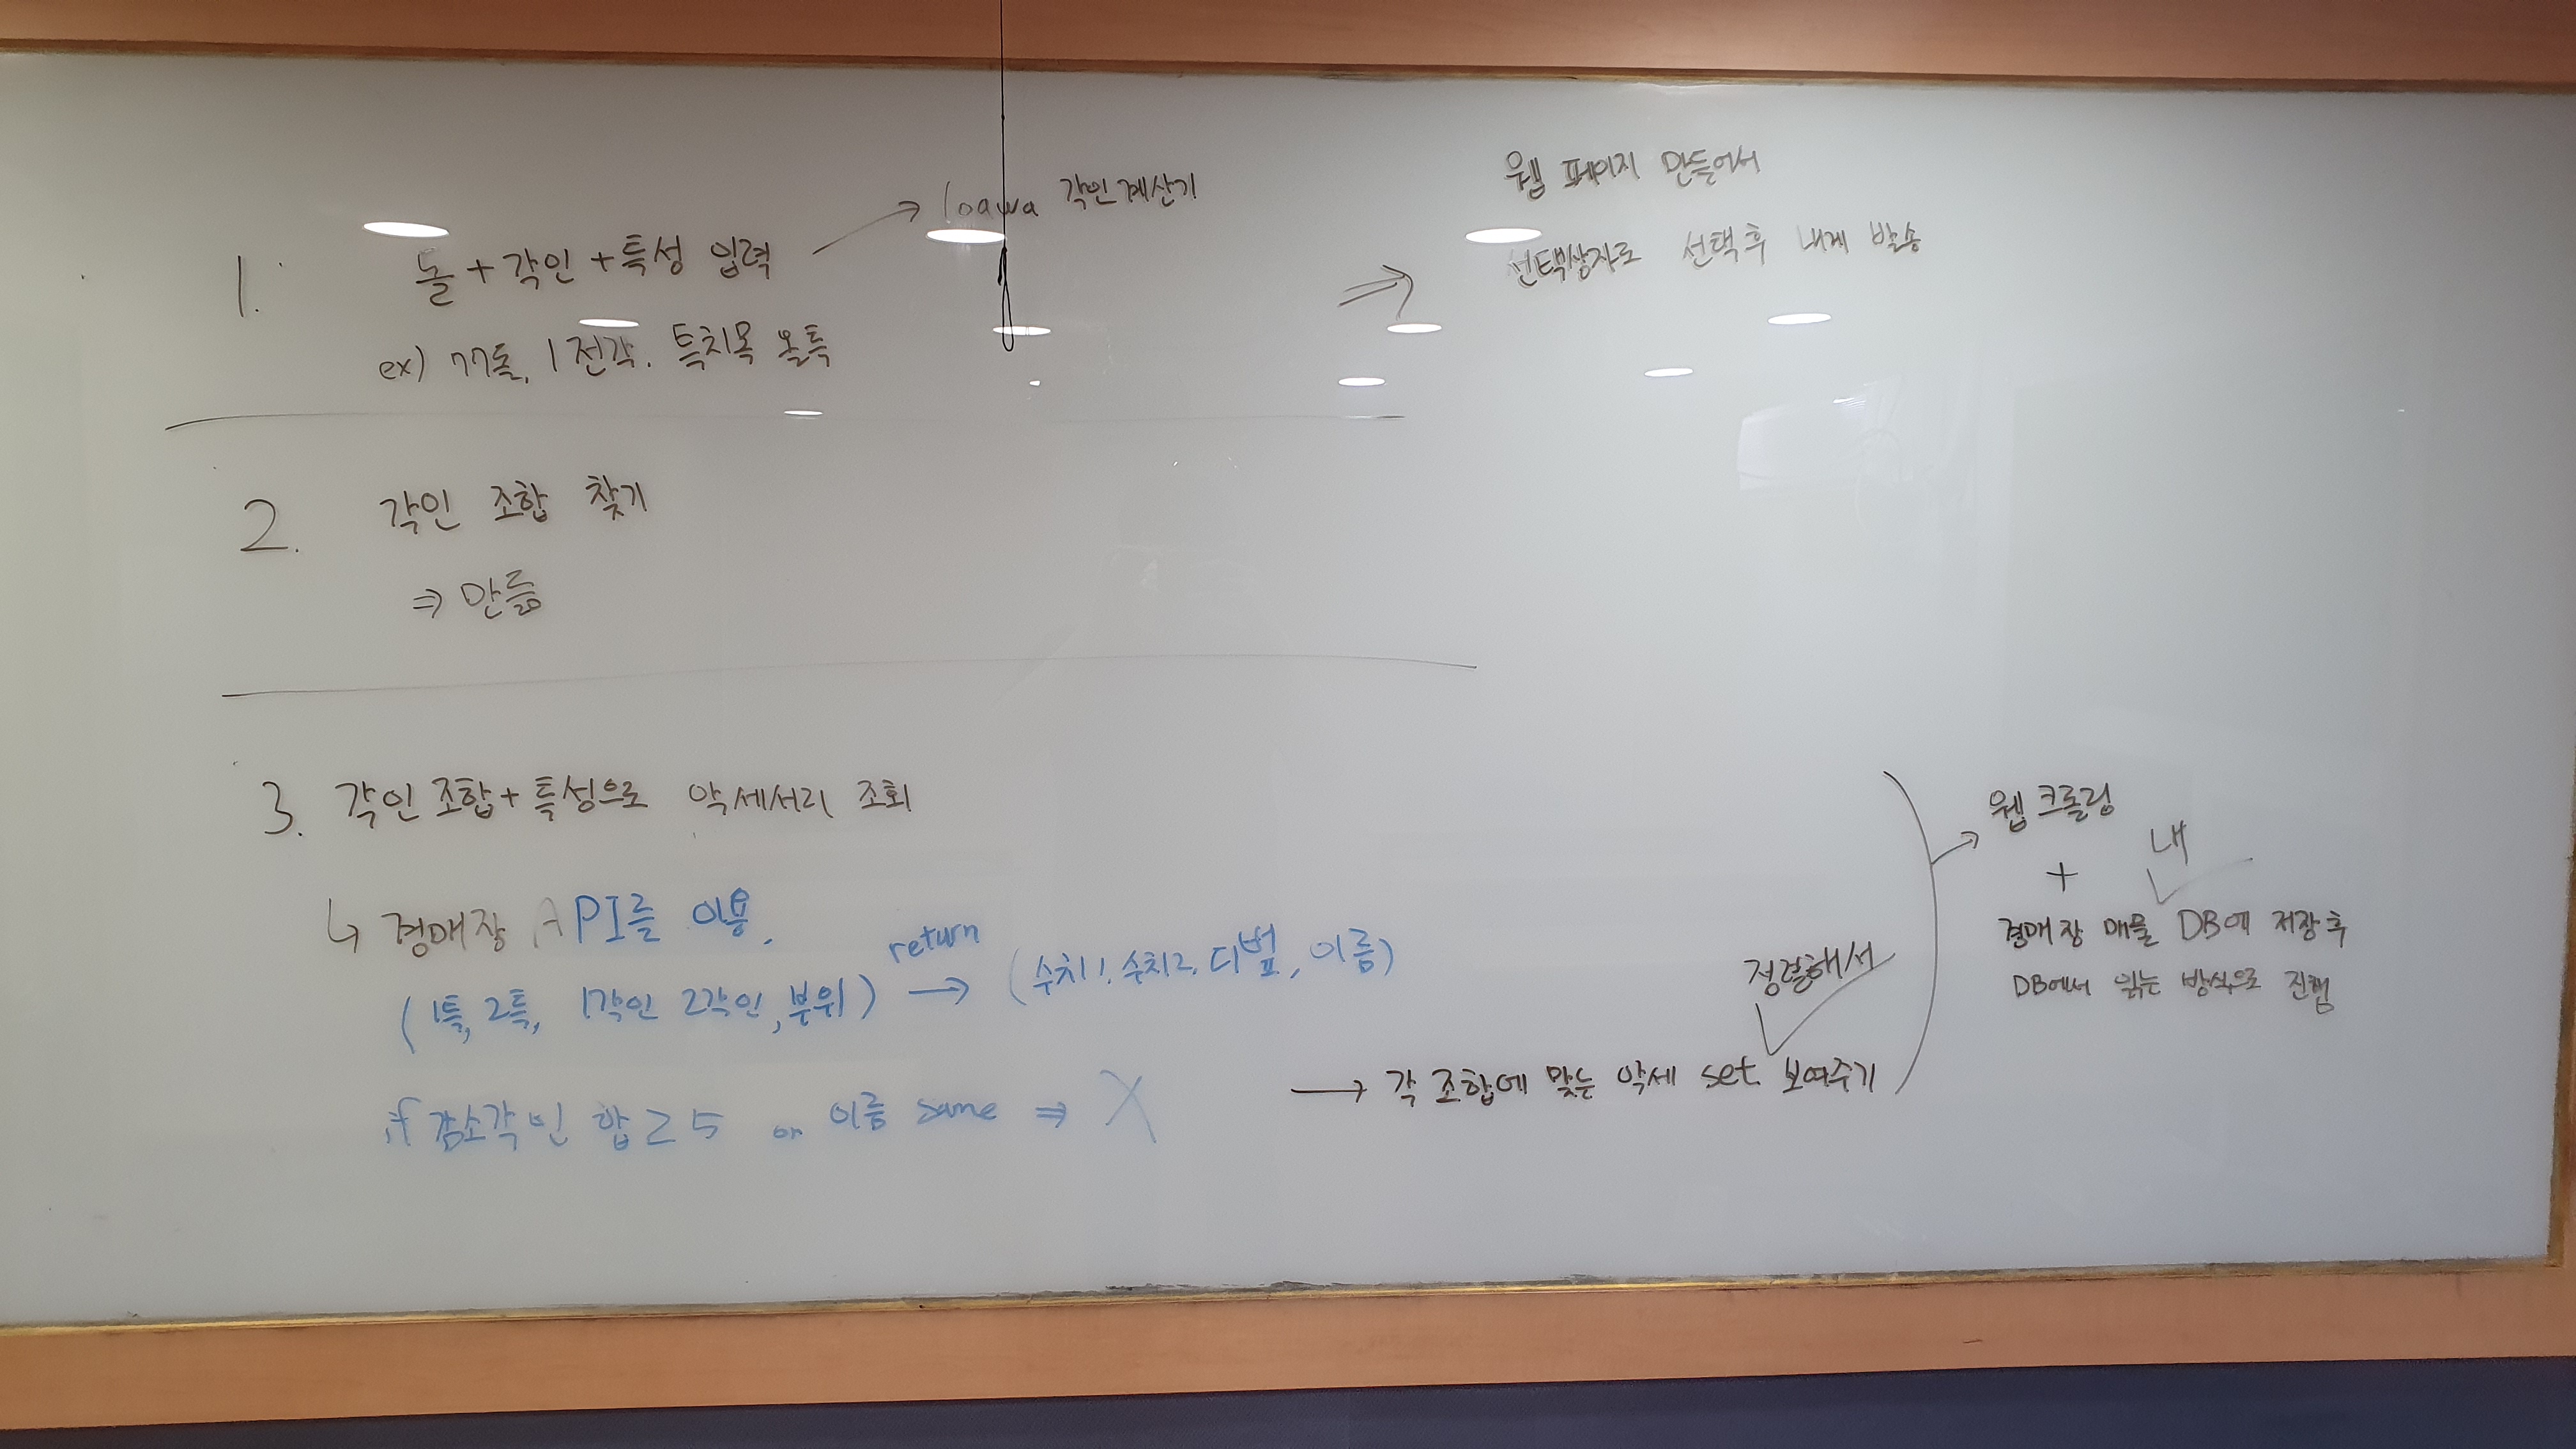 1. 돌 + 각인 + 특성 입력 → loawa 각인계산기
ex) 77돌, 1전각. 특치목 올특
⇒ 웹 페이지 만들어서
선택상자로 선택 후 내게 발송
2. 각인 조합 찾기
⇒ 만듦
3. 각인 조합 + 특성으로 악세서리 조회
↳ 경매장 API를 이용,
(1특, 2특, 1각인 2각인, 부위) return → (수치1, 수치2, 디벞, 이름)
if 감소각인 합 ≥ 5 or 이름 same ⇒ X
정렬해서
→ 각 조합에 맞는 악세 set 보여주기
→ 웹 크롤링
+
내
경매장 매물 DB에 저장 후
DB에서 읽는 방식으로 진행